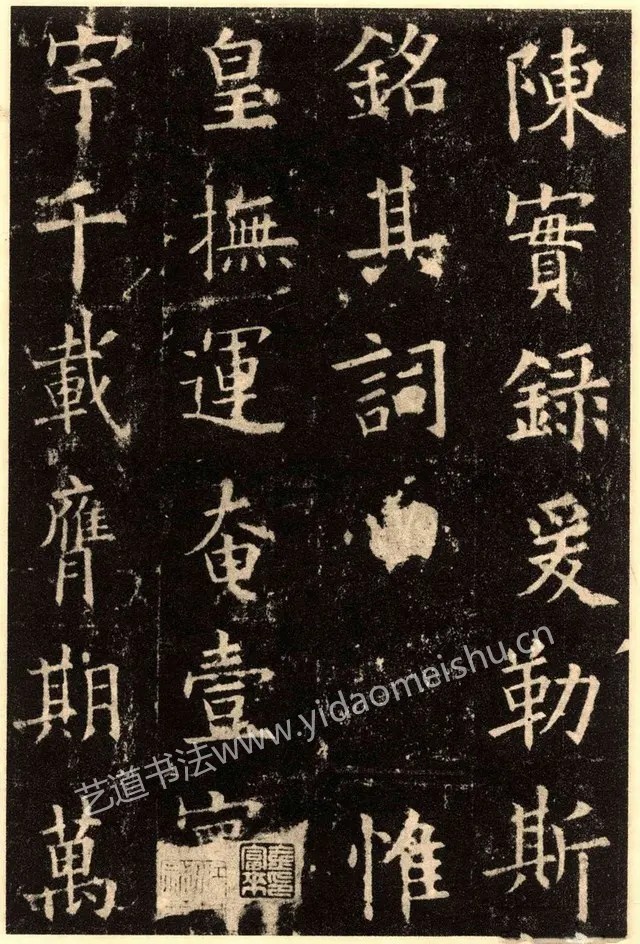 陳實錄爰勒斯
銘其詞 惟
皇撫運奄壹
宇千載膺期萬
艺道书法www.yidaomeishu.cn